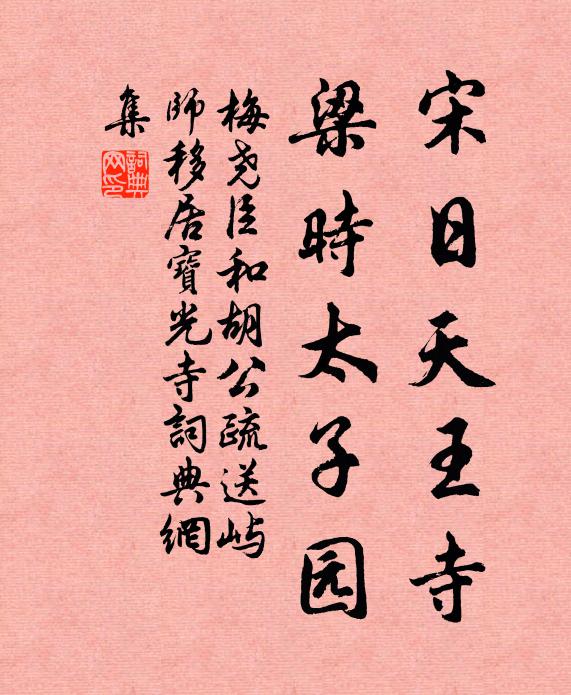 宋日天王寺
梁時太子园
梅尧臣和胡公疏送屿
師移居寶光寺詞典網
集
詞典
网印